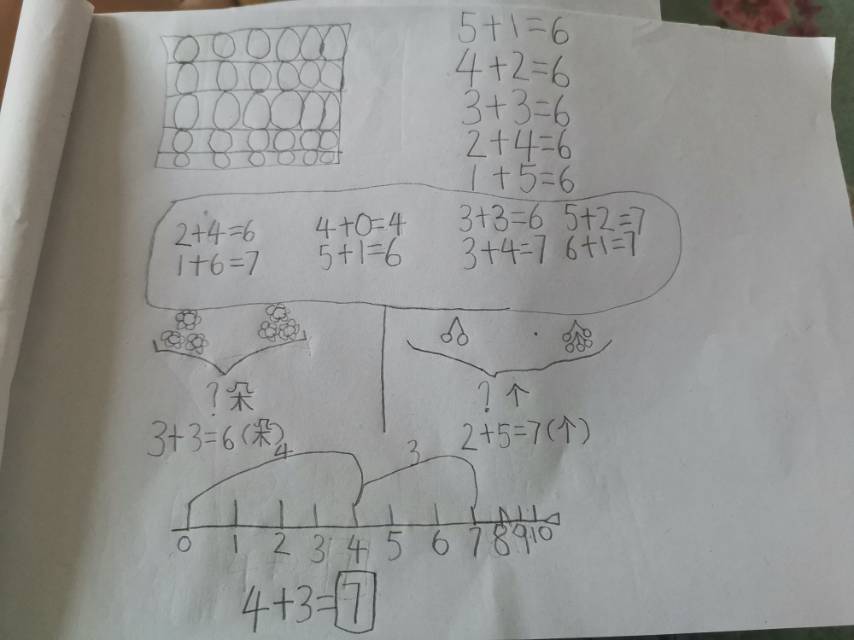 5+1=6
4+2=6
3+3=6
2+4=6
1+5=6
2+4=6 4+0=4 3+3=6 5+2=7
1+6=7 5+1=6 3+4=7 6+1=7
?朵 ?个
3+3=6(朵) 2+5=7(个)
4 3
0 1 2 3 4 5 6 7 8 9 10
4+3=7